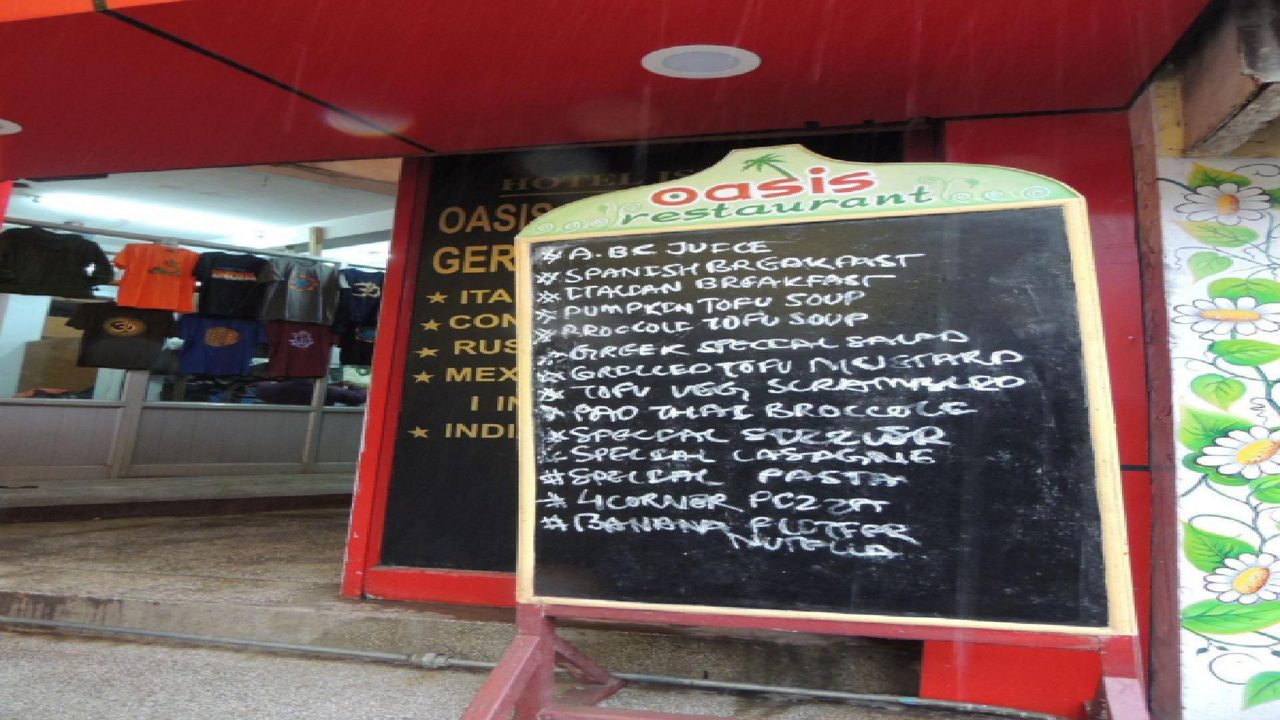 HOTEL IS
OASIS
GER
★ ITA
★ CON
★ RUS
★ MEX
I IN
★ INDI
oasis
restaurant
* A.BC JUICE
* SPANISH BREAKFAST
* ITALIAN BREAKFAST
* PUMPKIN TOFU SOUP
* BROCCOLE TOFU SOUP
* GREEK SPECIAL SALAD
* GRILLED TOFU MUSTARD
* TOFU VEGG SCRAMBLED
* PAD THAI BROCCOLE
* SPECIAL SIZZLER
* SPECIAL LASAGNE
* SPECIAL PASTA
* 4 CORNER PIZZA
* BANANA FLOTFER
NUTELLA